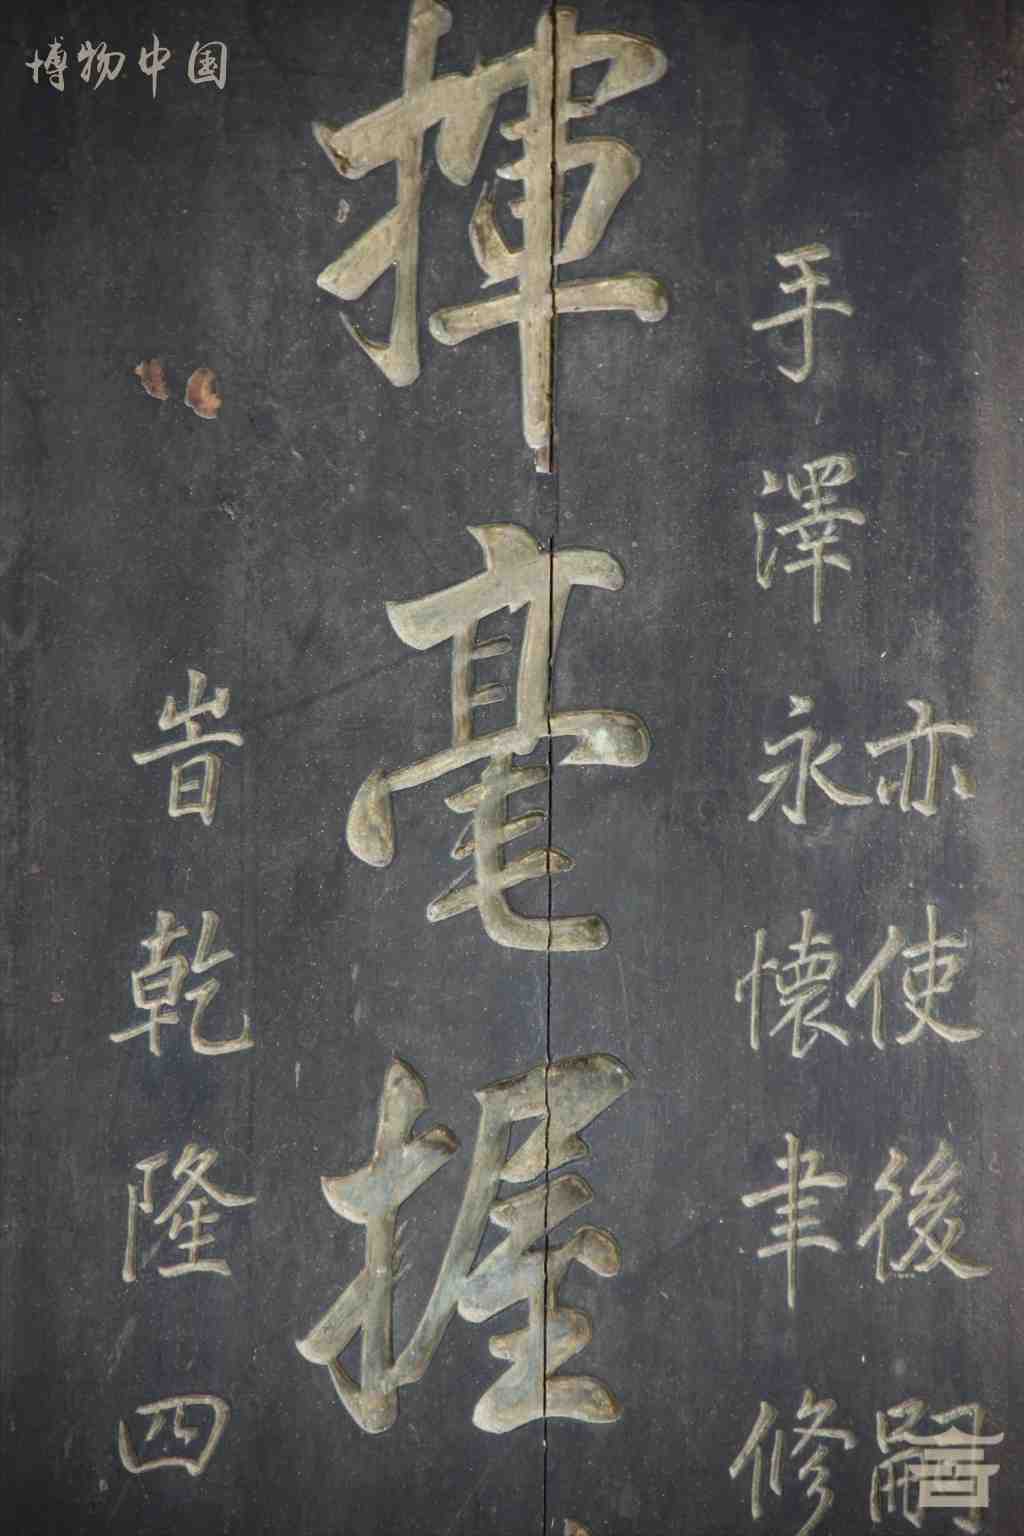 博物中国
亦使後嗣
手澤永懷聿修
揮毫握
旹乾隆四